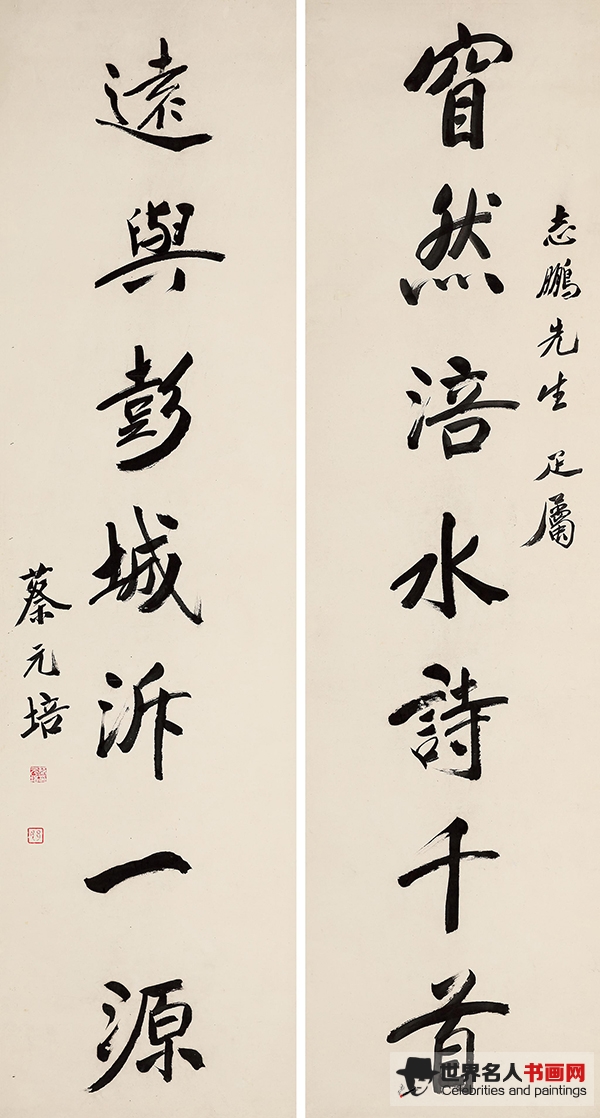 志鵬先生 疋屬
窅然涪水詩千首
遠與彭城泝一源
蔡元培
世界名人书画网
Celebrities and paintings